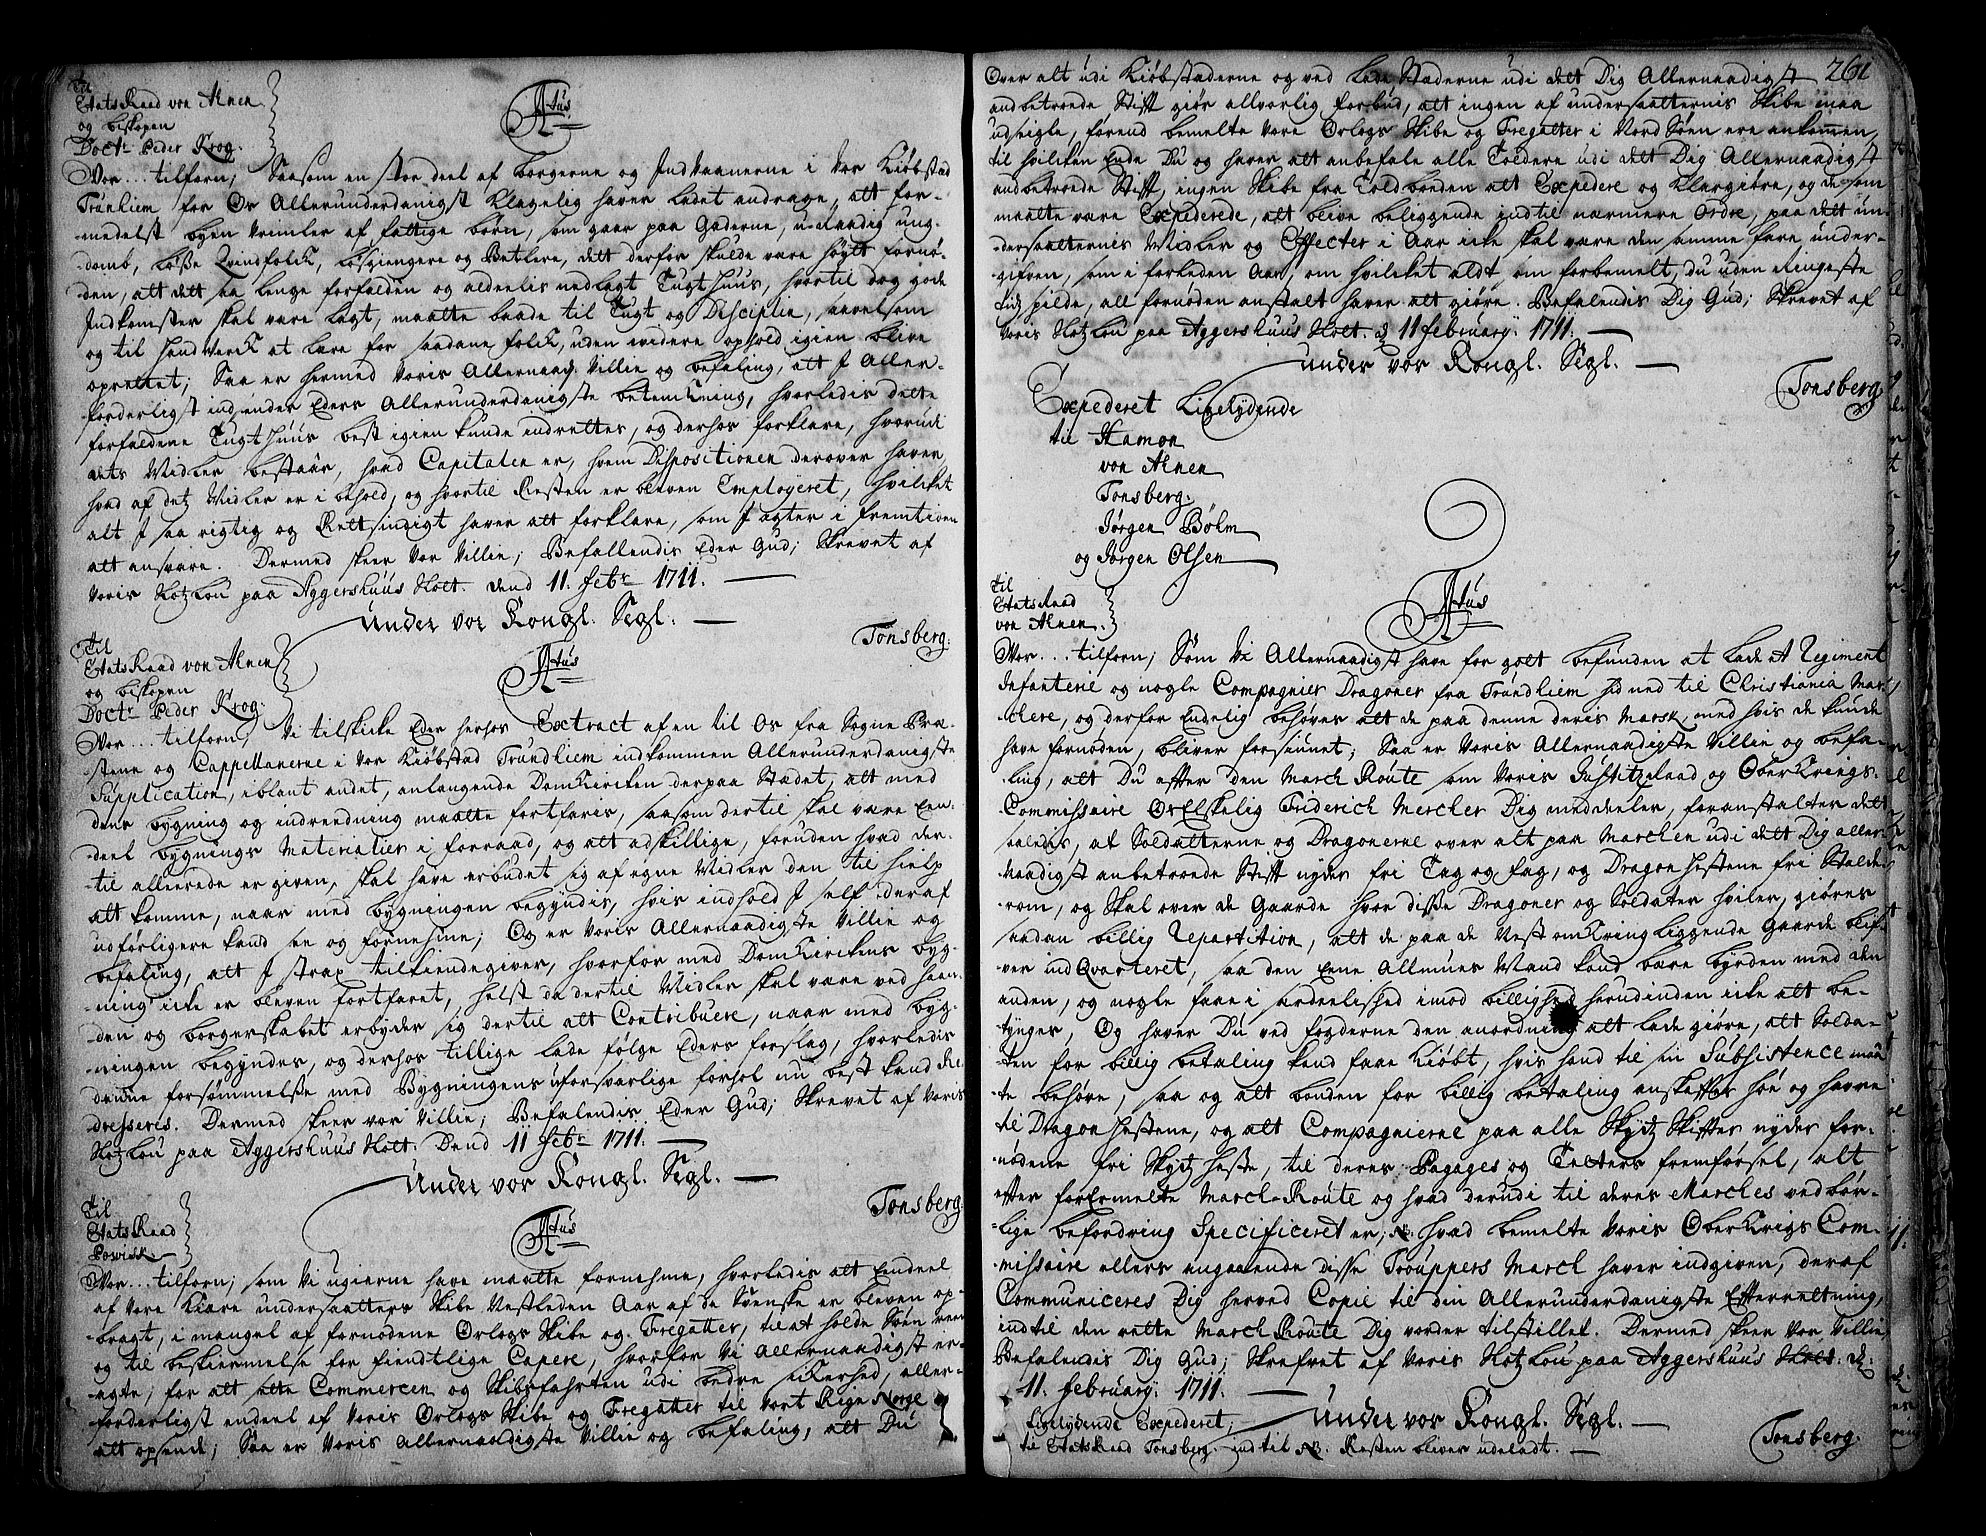 Til
Etats Raad von Ahnen
og biskopen
Doctr Peder Krog.
Atus
Vor... tilforn; Saasom en stor deel af borgerne og Indvaanerne i Vor Kiøbstad
Trünhiem for Os Allerunderdanigst klagelig haver ladet andrage, att for-
-medelst byen vrimler af fattige børn, som gaar paa Gaderne, u-naadig ung-
-domb, løsse Qvindfolck, løsgiengere og Betlere, dett derfor skulde være høyst fornø-
-den, att dett saa lenge forfalden og aldeelis nedlagt TugtHuus, hvortil dog gode
Indkomster skal være lagt, maatte baade til Tugt og Disciplin, saavelsom
og til handverck at lære for saadane folck, uden videre ophold igien blive
oprettet; Saa er hermed Voris Allernaad: Villie og befaling, att I Aller-
-forderligst indsender Eders Allerunderdanigste betenckning, hvorledis dette
forfaldene TugtHuus best igien kunde indrettes, og derhos forklare, hvorudi
dets Midler bestaar, hvad Capitalen er, hvem Dispositionen derover haver,
hvad af detz Midler er i behold, og hvortil Resten er bleven Employeret, hvilcket
alt I saa rigtig og Rettsindigt haver att forklare, som I agter i fremtiden
att ansvare. Dermed skeer Vor Villie; Befallendis Eder Gud; Skrevet af
Voris Slotzlou paa Aggershuus Slott. Dend 11. febr 1711.
Under vor Kongl. Segl.
Tonsberg.
Til
Etats Raad von Ahnen
og biskopen
Doctr Peder Krog.
Atus
Vor... tilforn, Vi tilskicke Eder herhos Extract af en til Os fra Sogne Præ-
-stene og Cappellanerne i Vor Kiøbstad Tründhiem indkommen Allerunderdanigste
Supplication, iblant andet, anlangende DomKircken derpaa Stædet, att med
dens bygning og indreedning maatte fortfaris, saasom dertil skal være Een-
-deel bygnings Materialier i forraad, og att adskillige, foruden hvad der-
-til allerede er given, skal have erbudet sig af egne Midler den til hielp
att komme, naar med bygningen begyndis, hvis indhold I self deraf
udførligere kand see og fornehme; Og er Voris Allernaadigste Villie og
befaling, att I strax tilkiendegiver, hvorfor med DomKirckens byg-
-ning icke er bleven fortfaret, helst da dertil Midler skal være ved haan-
-den og borgerskabet erbyder sig dertil att Contribuere, naar med byg-
-ningen begyndes, og derhos tillige lade følge Eders forslag, hvorledis
denne forsømmelse med Bygningens uforsvarlige forhol nu best kand Re-
dresseris. Dermed skeer vor Villie; Befalendis Eder Gud; Skrevet af Voris
Slotzlou paa Aggershuus Slott. Dend 11 febr 1711.
Under vor Kongl. Segl.
Tonsberg
Til
Etats Raad
Powisk.
Atus
Vor... tilforn; som Vi ugierne have maatte fornehme, hvorledis att Eendeel
af Vore Kiære undersaatters Skibe Nestleden Aar af de Svenske er bleven op-
-bragt, i mangel af fornødene Orlogs Skibe og Fregatter, til at holde Søen reen
og til beskiermelse for fiendtlige Capere, hvorfor Vi Allernaadigst er-
-agte, for att sette Commercen og Skibsfahrten udi bedre sickerhed, aller-
forderligst endeel af Voris Orlogs Skibe og Fregatter til Vort Rige Norge
att opsende; Saa er Voris Allernaadigste Villie og befaling, att Du
261
Over alt udi Kiøbstæderne og ved Lade Stæderne udi dett Dig Allernaadigst
anbetroede Stift giør allvorlig forbud, att ingen af undersaatternis Skibe maa
udseigle, førend bemelte Vore Orlogs Skibe og Fregatter i Nord Søen ere ankommen,
til hvilcken Ende Du og haver att anbefale alle Toldere udi dett Dig Allernaadigst
anbetroede Stift, ingen Skibe fra Toldboden att Expedere og Klargiøre, og de som
maatte være Expederede, att blive beliggende indtil nærmere Ordre, paa dett un-
-dersaatternes Midler og Effecter i Aar icke skal være den samme fare under-
-gifven, som i forleden Aar, om hvilcket aldt som forbemelt, du uden ringeste
tids pilde, all fornøden anstalt haver att giøre. Befalendis Dig Gud; Skrevet af
Voris Slotzlou paa Aggershuus Slott. d 11 february. 1711.
Under vor Kongl. Segl.
Tonsberg
Expederet Ligelydende
til Hamon
von Ahnen
Tonsberg.
Jørgen Bølm
og Jørgen Olsen
Til
Etats Raad
von Ahnen.
Atus
Vor... tilforn; Som Vi Allernaadigst have for gott befunden at lade et Regiment
Infanterie og nogle Compagnier Dragoner fra Trundhiem hid ned til Christiania Mar-
-chere, og derfor Endelig behøves att de paa denne deris Marsk, med hvis de kunde
have fornøden, bliver forsiunet; Saa er Voris Allernaadigste Villie og befa-
-ling, att Du efter den March Route som Voris Justitz Raad og OberKrigs-
Commissaire OsElskelig Friderich Mercker Dig meddeeler, foranstalter dett
saaledis, at Soldatterne og Dragonerne over alt paa Marchen udi dett Dig aller-
naadigst anbetroede Stift nyder fri Tag og fag, og Dragon Hestene fri Stald-
-rom, og skal over de Gaarde hvor disse Dragoner og Soldater hviler, giøres
saadan billig Repartition, att de paa de Nest omkring liggende Gaarde blif-
-ver indQvarteret, saa den Eene Allmues Mand kand bære byrden med den
anden, og nogle faae i særdeelished imod billighed herudinden icke att be-
-tynges, Og haver Du ved fogderne den anordning att lade giøre, att Solda-
-ten for billig betaling kand faae Kiøbt, hvis hand til sin Subsistence maa-
-te behøve, saa og att bonden for billig betaling anskaffer høe og havre
til Dragon Hestene, og att Compagnierne paa alle Skydz Skifter nyder for-
-nødene fri Skydz Heste, til deres Bagages og Telters fremførsel, alt
efter forbemelte March-Route og hvad derudi til deres Marches vedbør-
-lige befordring Specificeret er; NB. hvad bemelte Voris OberKrigs Com-
-missaire ellers angaaende disse Trouppers March haver indgiven, deraf
Communiceres Dig herved Copie til din Allerunderdanigste Efterrettning,
indtil den rette March Route Dig vorder tilstillet. Dermed skeer Vor Villie,
Befalendis Dig Gud; Skrefvet af Voris Slotzlou paa Aggershuus Slott. d.
11. february. 1711.
Under vor Kongl. Segl.
Tonsberg.
Ligelydende Expederet,
til Etats Raad Tonsberg. indtil NB. Resten bliver udeladt.